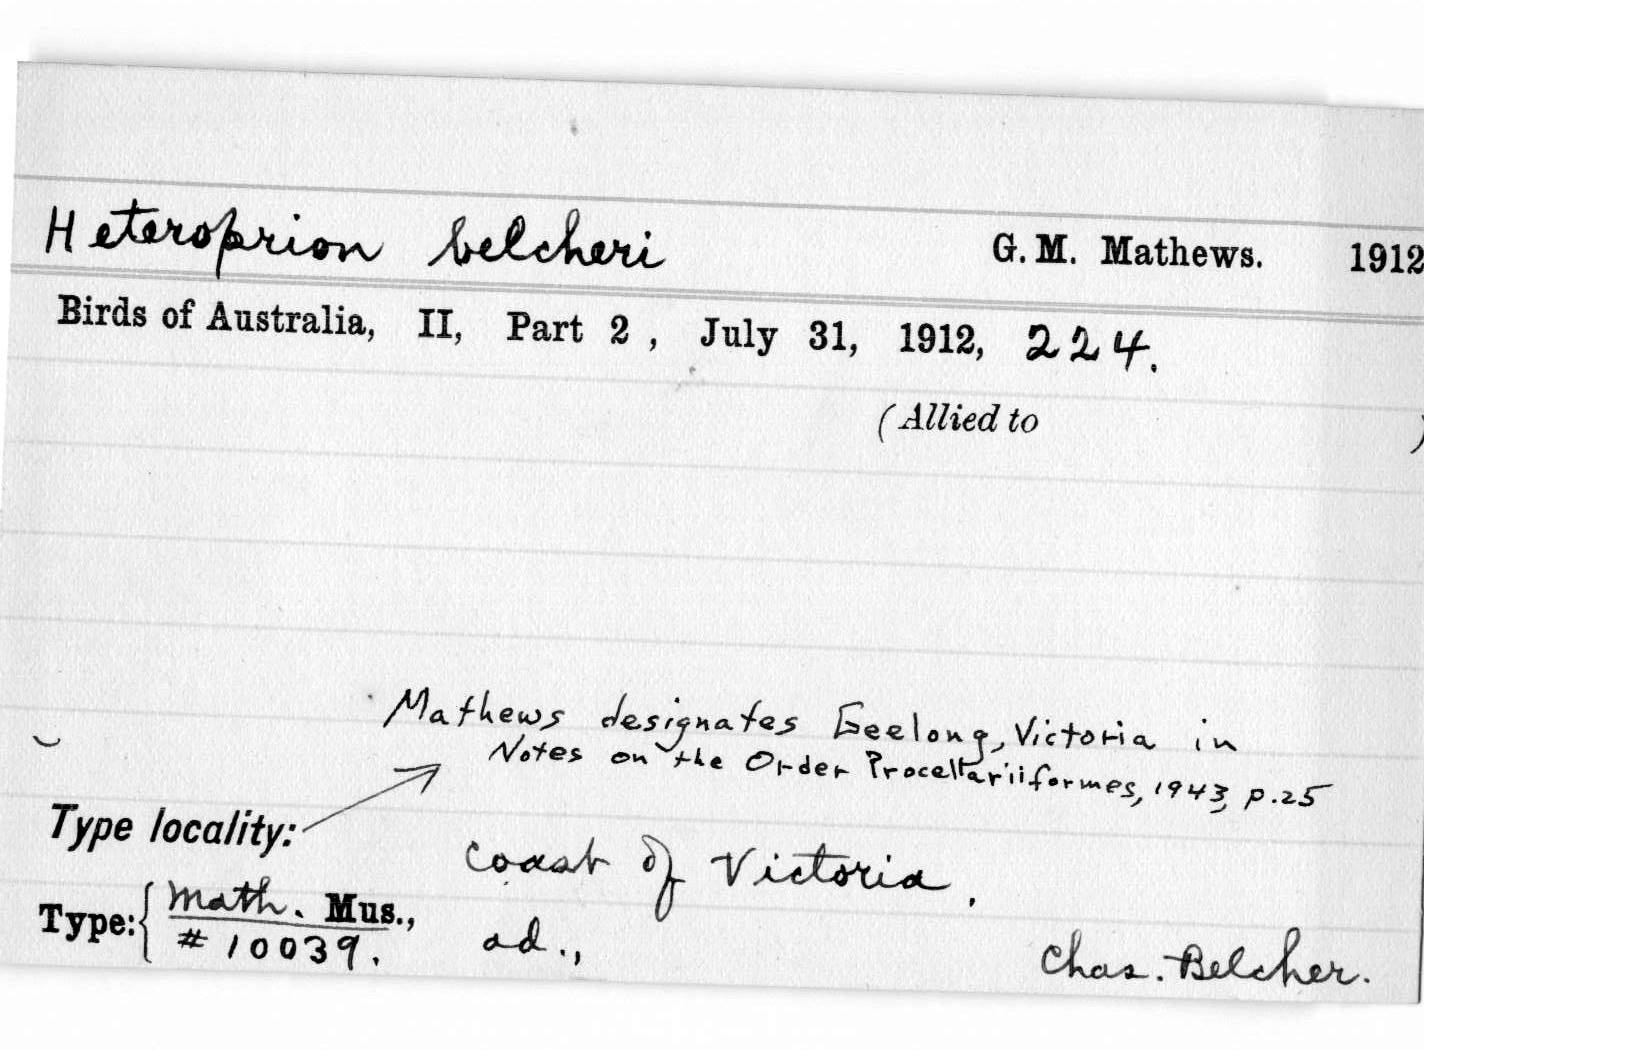 Heteroprion belcheri G. M. Mathews. 1912
Birds of Australia, II, Part 2, July 31, 1912, 224.
(Allied to )
Mathews designates Geelong, Victoria in
Notes on the Order Procellariiformes, 1943, p.25
Type locality:
coast of Victoria.
Type: { Math. Mus., ad., Chas. Belcher.
#10039.